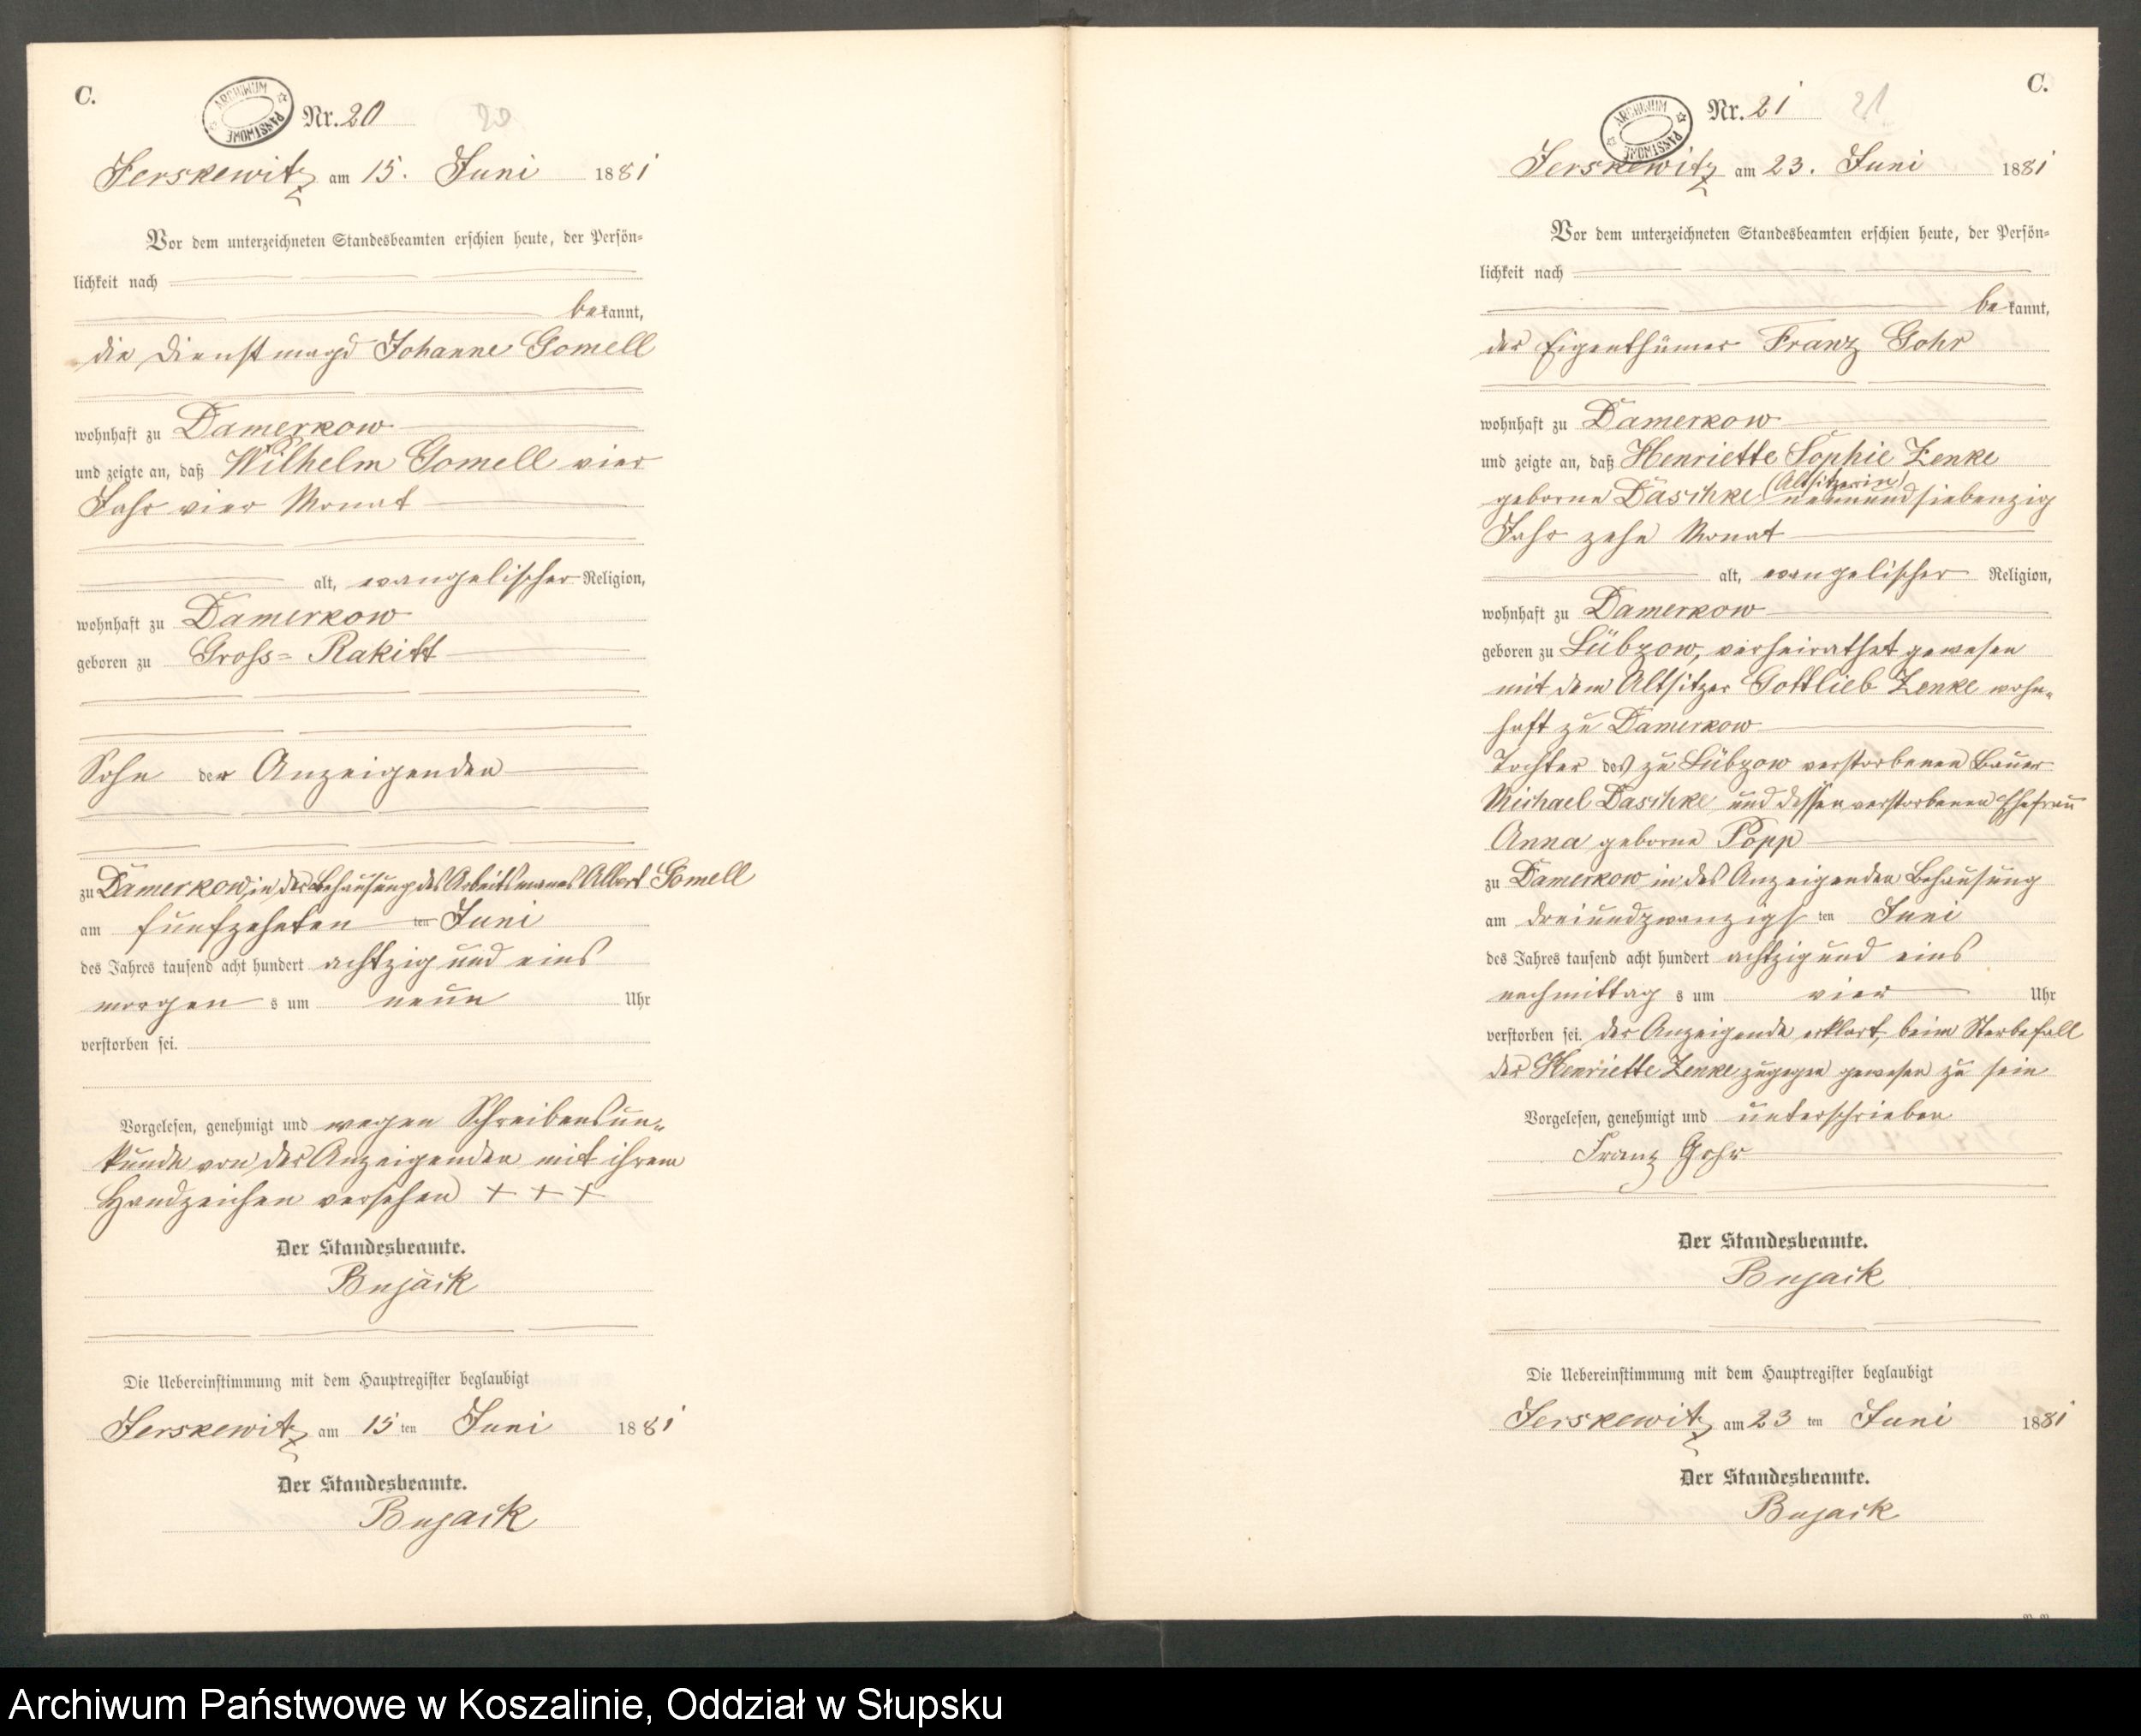 C.
ARCHIWUM PAŃSTWOWE
Nr. 20
20
Jerskewitz am 15. Juni 1881
Vor dem unterzeichneten Standesbeamten erschien heute, der Persön-
lichkeit nach
bekannt,
die Dienstmagd Johanne Gomell
wohnhaft zu Damerkow
und zeigte an, daß Wilhelm Gomell vier
Jahr vier Monat
alt, evangelischer Religion,
wohnhaft zu Damerkow
geboren zu Gross-Rakitt
Sohn der Anzeigenden
zu Damerkow, in der Behausung des Arbeitsmannes Albert Gomell
am funfzehnten ten Juni
des Jahres tausend acht hundert achtzig und eins
morgen s um neun Uhr
verstorben sei.
Vorgelesen, genehmigt und wegen Schreibensun-
kunde von der Anzeigenden mit ihrem
Handzeichen versehen + + +
Der Standesbeamte.
Bujack
Die Uebereinstimmung mit dem Hauptregister beglaubigt
Jerskewitz am 15 ten Juni 1881
Der Standesbeamte.
Bujack
C.
ARCHIWUM PAŃSTWOWE
Nr. 21
21
Jerskewitz am 23. Juni 1881
Vor dem unterzeichneten Standesbeamten erschien heute, der Persön-
lichkeit nach
bekannt,
der Eigenthümer Franz Gohr
wohnhaft zu Damerkow
und zeigte an, daß Henriette Sophie Zenke
(Altsitzerin)
geborne Daschke neunundsiebenzig
Jahr zehn Monat
alt, evangelischer Religion,
wohnhaft zu Damerkow
geboren zu Lübzow, verheirathet gewesen
mit dem Altsitzer Gottlieb Zenke wohn-
haft zu Damerkow
Tochter des zu Lübzow verstorbenen Bauer
Michael Daschke und dessen verstorbenen Ehefrau
Anna geborne Popp
zu Damerkow in des Anzeigenden Behausung
am dreiundzwanzigs ten Juni
des Jahres tausend acht hundert achtzig und eins
nachmittag s um vier Uhr
verstorben sei. der Anzeigende erklärt, beim Sterbefall
der Henriette Zenke zugegen gewesen zu sein
Vorgelesen, genehmigt und unterschrieben
Franz Gohr
Der Standesbeamte.
Bujack
Die Uebereinstimmung mit dem Hauptregister beglaubigt
Jerskewitz am 23 ten Juni 1881
Der Standesbeamte.
Bujack
Archiwum Państwowe w Koszalinie, Oddział w Słupsku